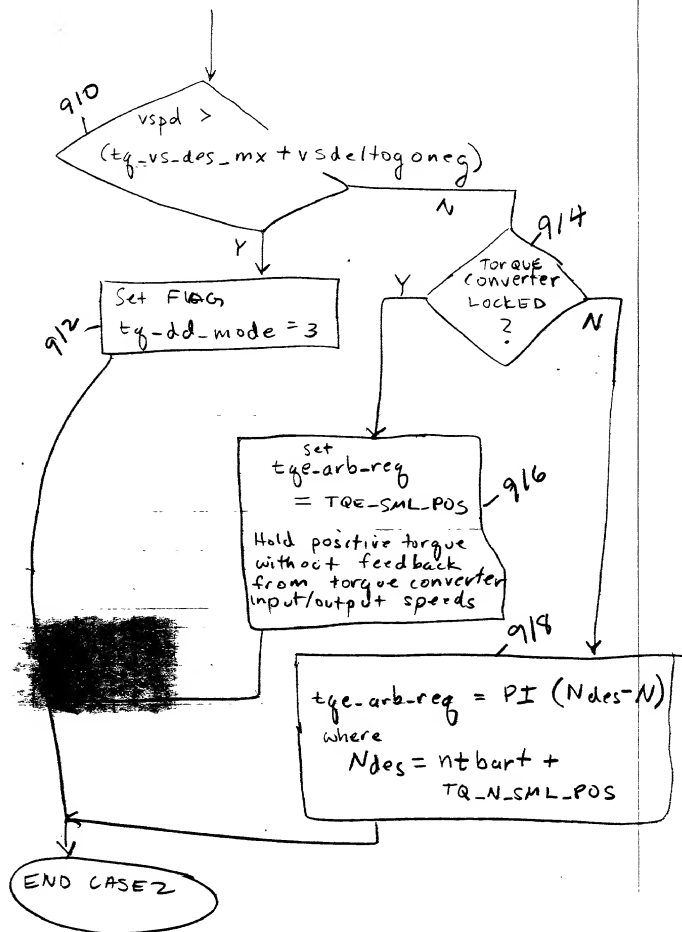 910
vspd >
(tq_vs_des_mx + vsdeltogoneg)
N
Y
914
TORQUE
Converter
LOCKED
?
Y
N
912
Set FLAG
tq_dd_mode = 3
set
tqe_arb_req
= TQE_SML_POS
916
Hold positive torque
without feedback
from torque converter
input/output speeds
918
tqe_arb_req = PI (Ndes-N)
where
Ndes = ntbart +
TQ_N_SML_POS
END CASE2